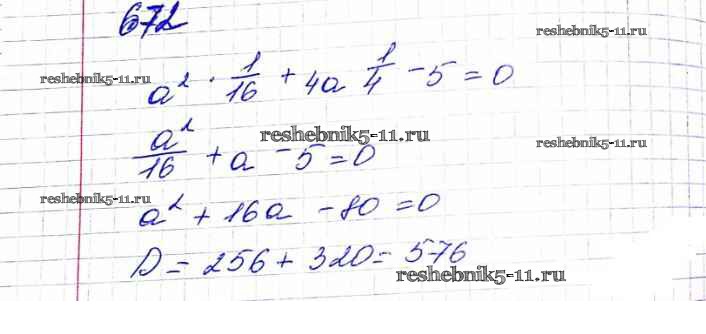 672
reshebnik5-11.ru reshebnik5-11.ru
a² · 1/16 + 4a 1/4 - 5 = 0
reshebnik5-11.ru reshebnik5-11.ru
a²/16 + a - 5 = 0
reshebnik5-11.ru
a² + 16a - 80 = 0
D = 256 + 320 = 576
reshebnik5-11.ru